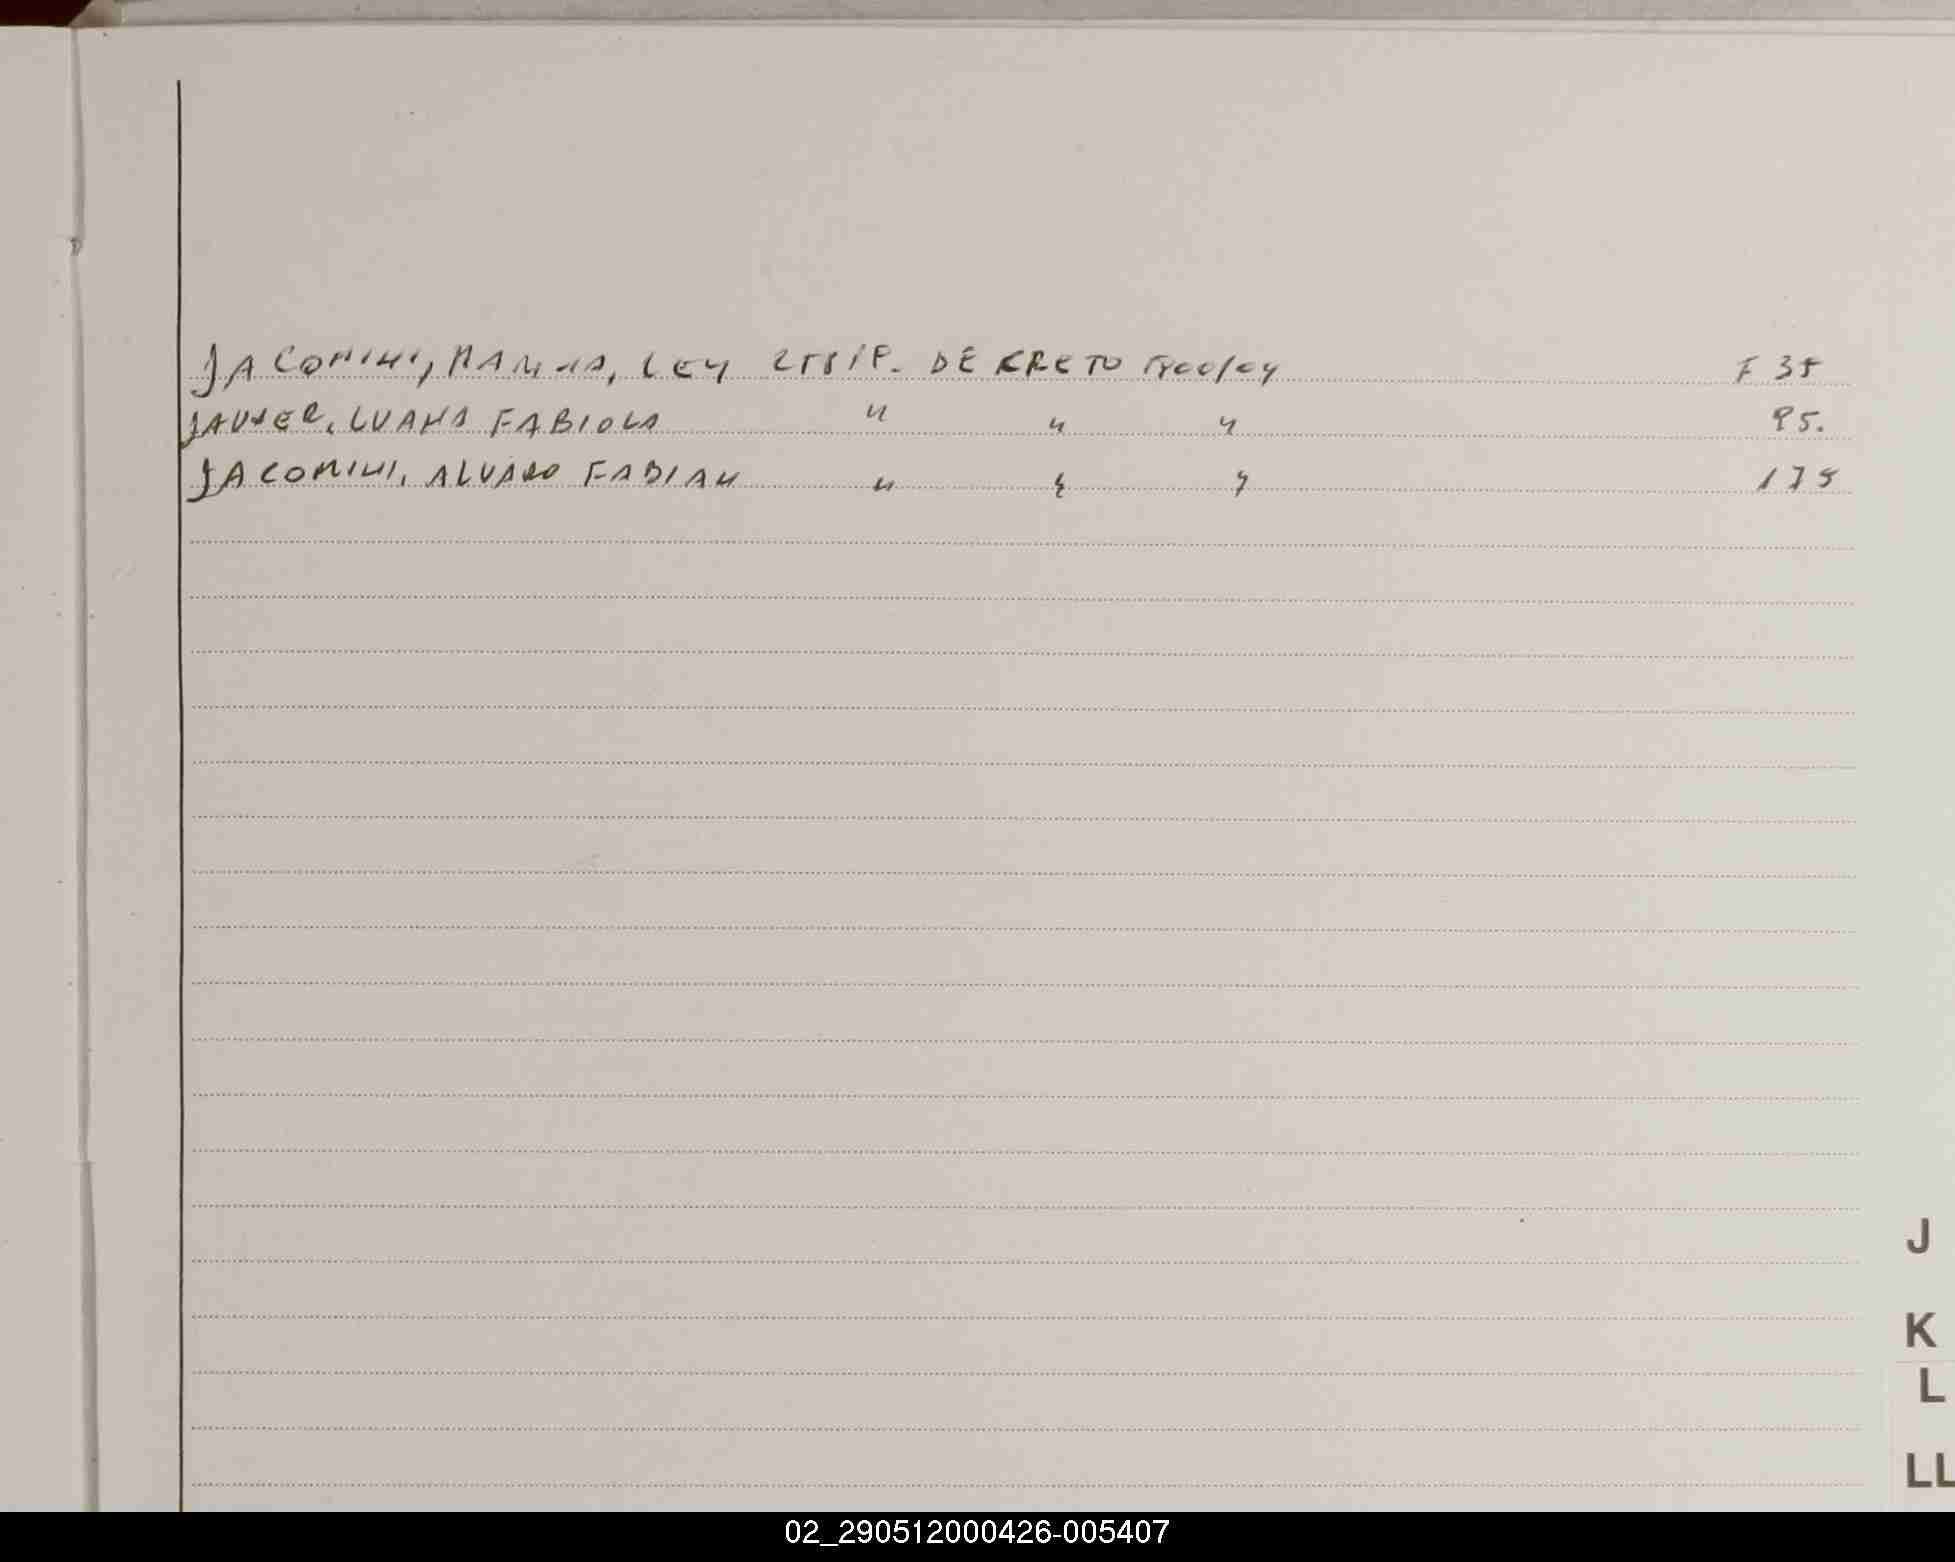 JACOMINI, MARINA, LEY 25819. DECRETO F 35
JAVIER, LUANA FABIOLA " " " 95.
JACOMINI, ALVARO FABIAN " " " 175
J
K
L
LL
02_290512000426-005407